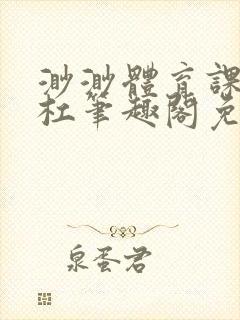 渺渺體育課
杜筆趣閣免
泉蛋君